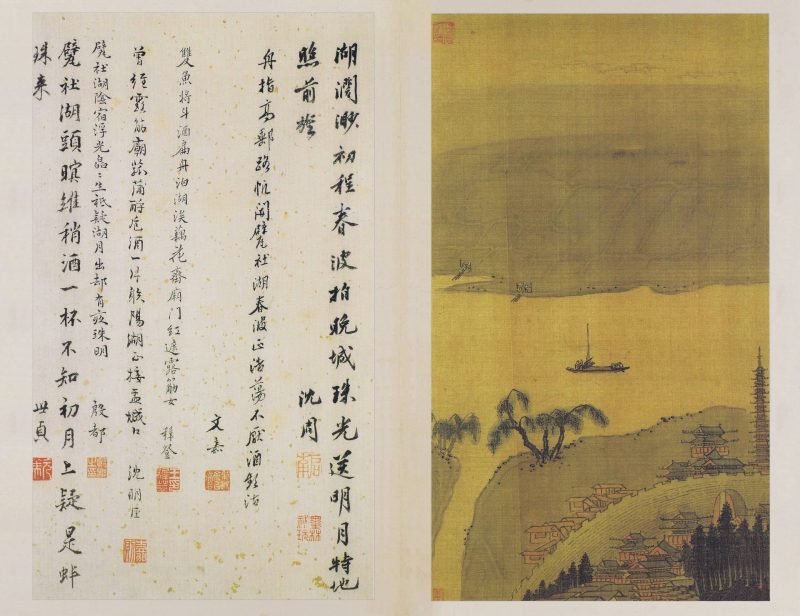 湖闊渺初程春波拍晚城珠光送明月特地
照前旌 沈周
舟指高郵路帆開甓社湖春波正浩蕩不厭酒頻沽
文嘉
雙魚將斗酒扁舟泊湖漵藕花齊廟門紅遮露筋女
曾經露筋廟蒲酹卮酒一片陽湖正接盂城口 沈明臣
甓社湖陰宿浮光晶晶生祇疑湖月出却有夜珠明 殷都
甓社湖頭暝維稍酒一杯不知初月上疑是蚌
珠来 世貞